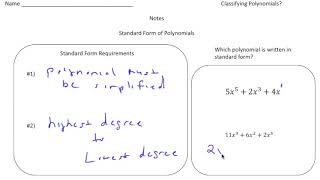 Name Classifying Polynomials?
Notes
Standard Form of Polynomials
Standard Form Requirements
#1) Polynomial must
be simplified
#2) highest degree
to
Lowest degree
Which polynomial is written in
standard form?
5x⁵ + 2x³ + 4x¹
11x³ + 6x² + 2x⁵
2x